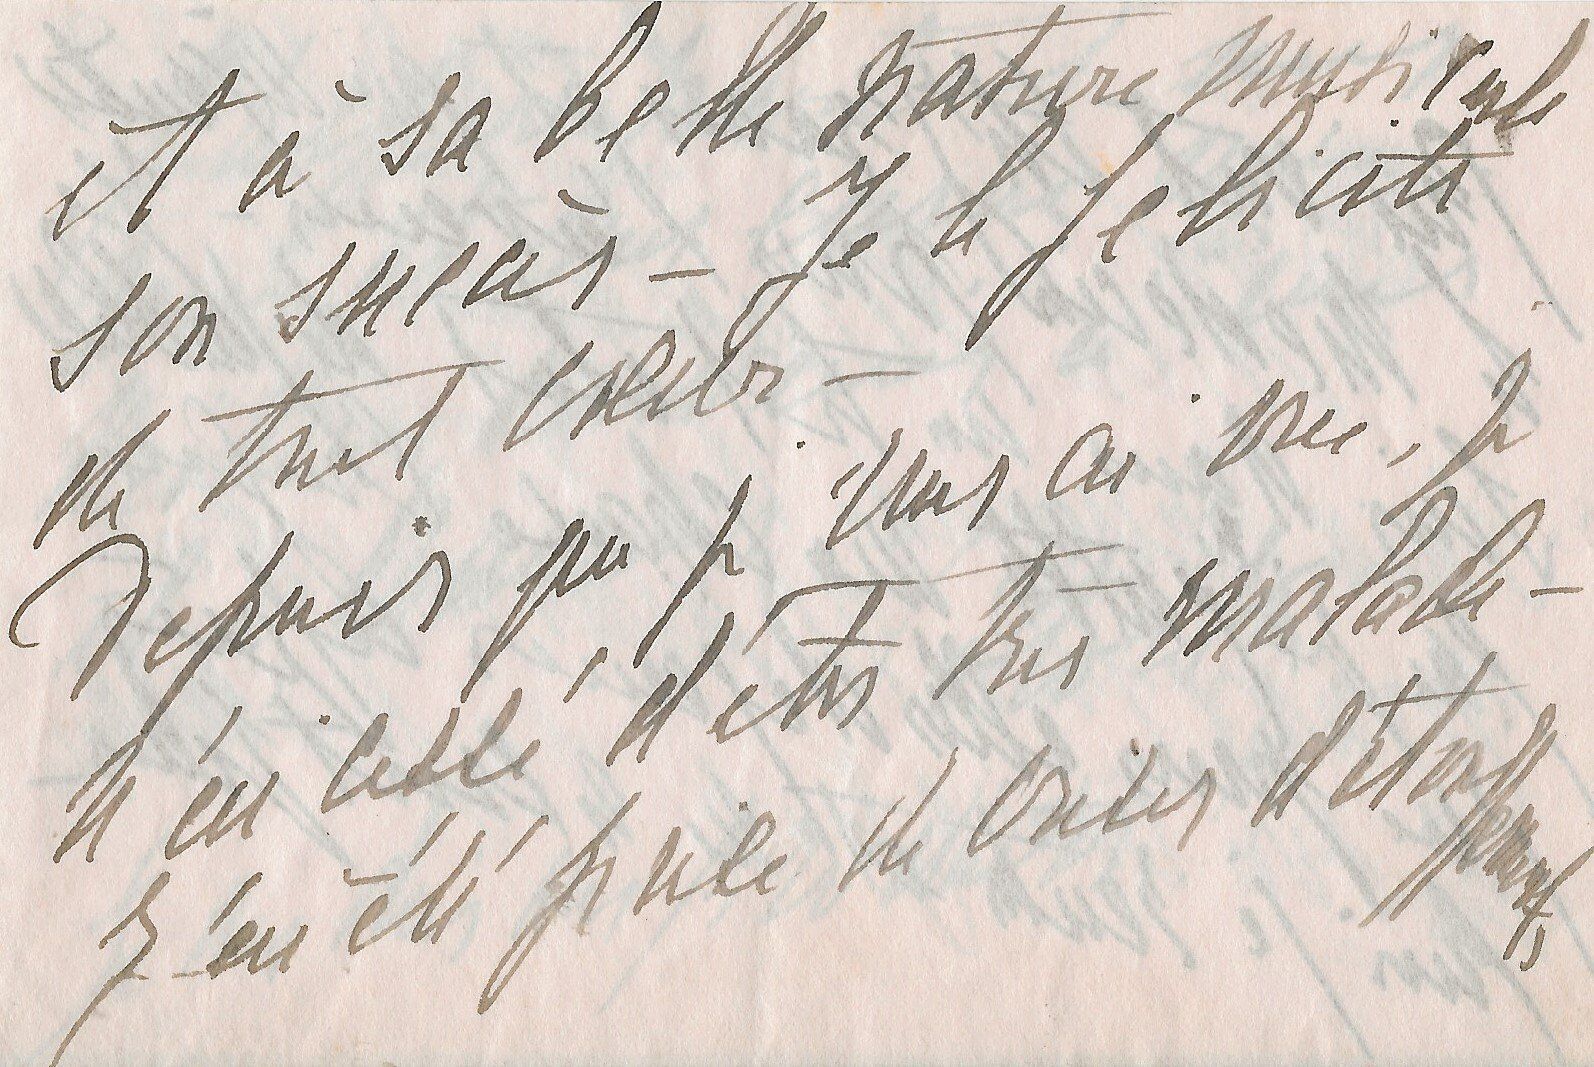 et à sa belle nature musicale
son succès — Je le félicite
de tout cœur —
Depuis que je vous ai vue, je
n'ai cessé d'être très malade —
J'ai été prise de crises d'étouffements